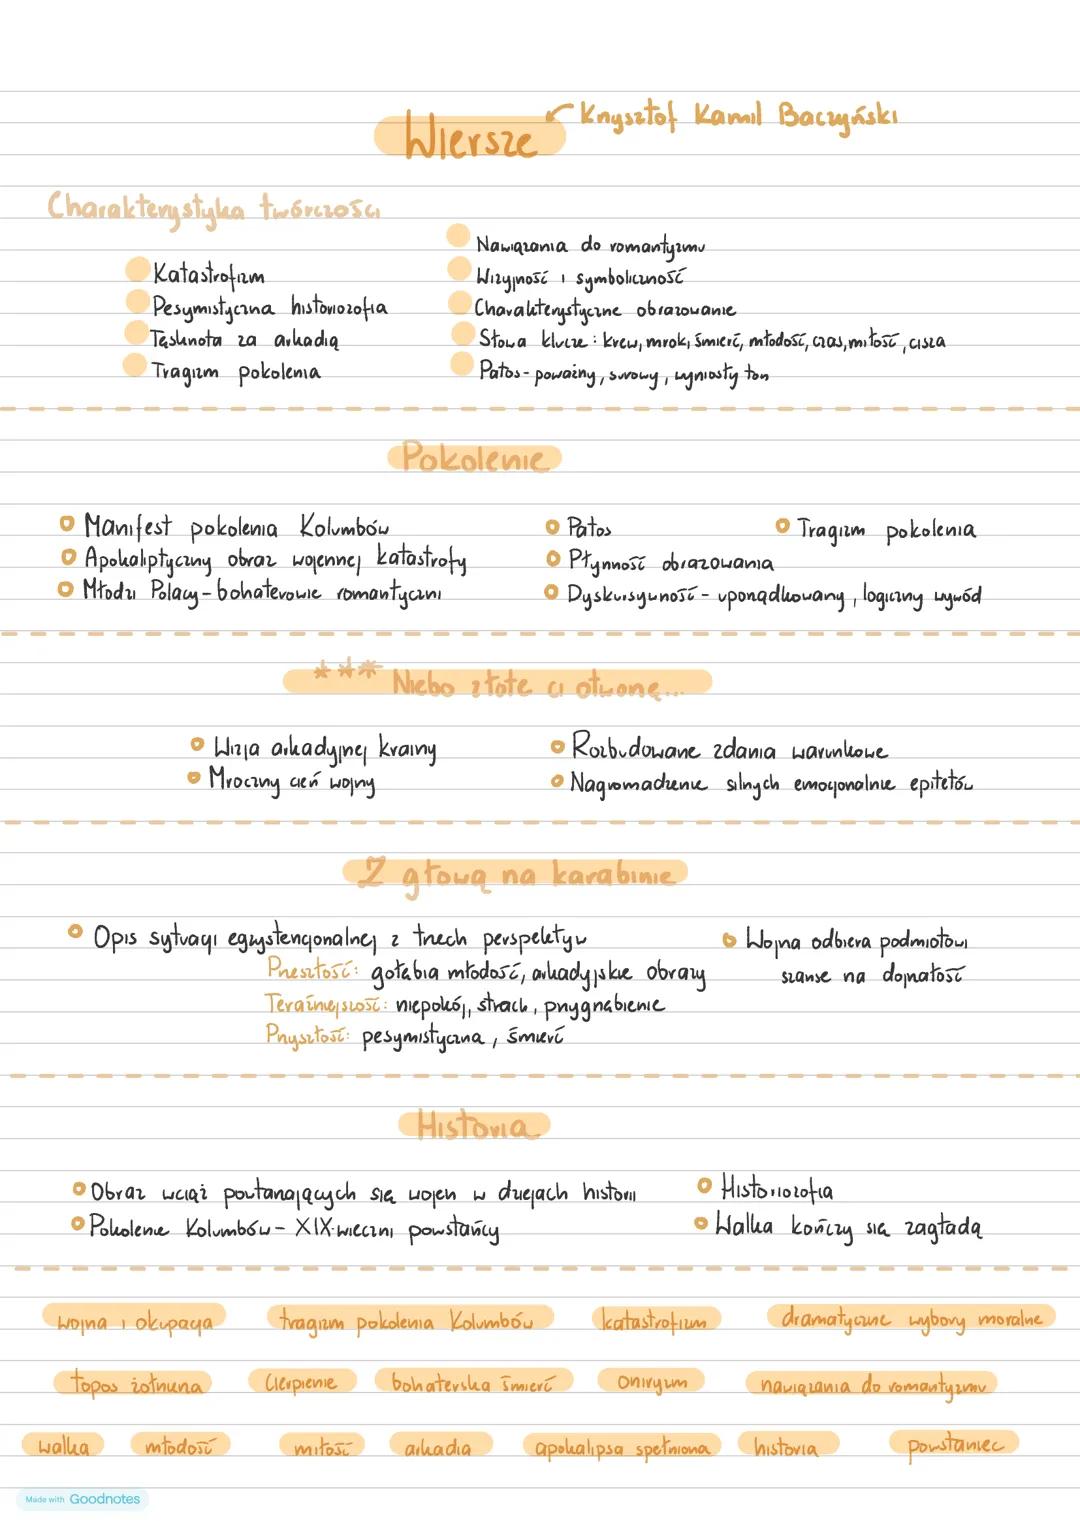 Wiersze
Krzysztof Kamil Baczyński
Charakterystyka twórczości
Katastrofizm
Pesymistyczna historiozofia
Tęsknota za arkadią
Tragizm pokolenia
Nawiązania do romantyzmu
Wizyjność i symboliczność
Charakterystyczne obrazowanie
Słowa klucze: krew, mrok, śmierć, młodość, czas, miłość, cisza
Patos - poważny, surowy, wyniosły ton
Pokolenie
Manifest pokolenia Kolumbów
Apokaliptyczny obraz wojennej katastrofy
Młodzi Polacy - bohaterowie romantyczni
Patos
Płynność obrazowania
Dyskursywność - uporządkowany, logiczny wywód
Tragizm pokolenia
*** Niebo złote ci otworzę...
Wizja arkadyjnej krainy
Mroczny cień wojny
Rozbudowane zdania warunkowe
Nagromadzenie silnych emocjonalnie epitetów
Z głową na karabinie
Opis sytuacji egzystencjonalnej z trzech perspektyw
Przeszłość: gołębia młodość, arkadyjskie obrazy
Teraźniejszość: niepokój, strach, przygnębienie
Przyszłość: pesymistyczna, śmierć
Wojna odbiera podmiotowi
szanse na dojrzałość
Historia
Obraz wciąż powtarzających się wojen w dziejach historii
Pokolenie Kolumbów - XIX-wieczni powstańcy
Historiozofia
Walka kończy się zagładą
wojna i okupacja
tragizm pokolenia Kolumbów
katastrofizm
dramatyczne wybory moralne
topos żołnierza
cierpienie
bohaterska śmierć
oniryzm
nawiązania do romantyzmu
walka
młodość
miłość
arkadia
apokalipsa spełniona
historia
powstaniec
Made with Goodnotes